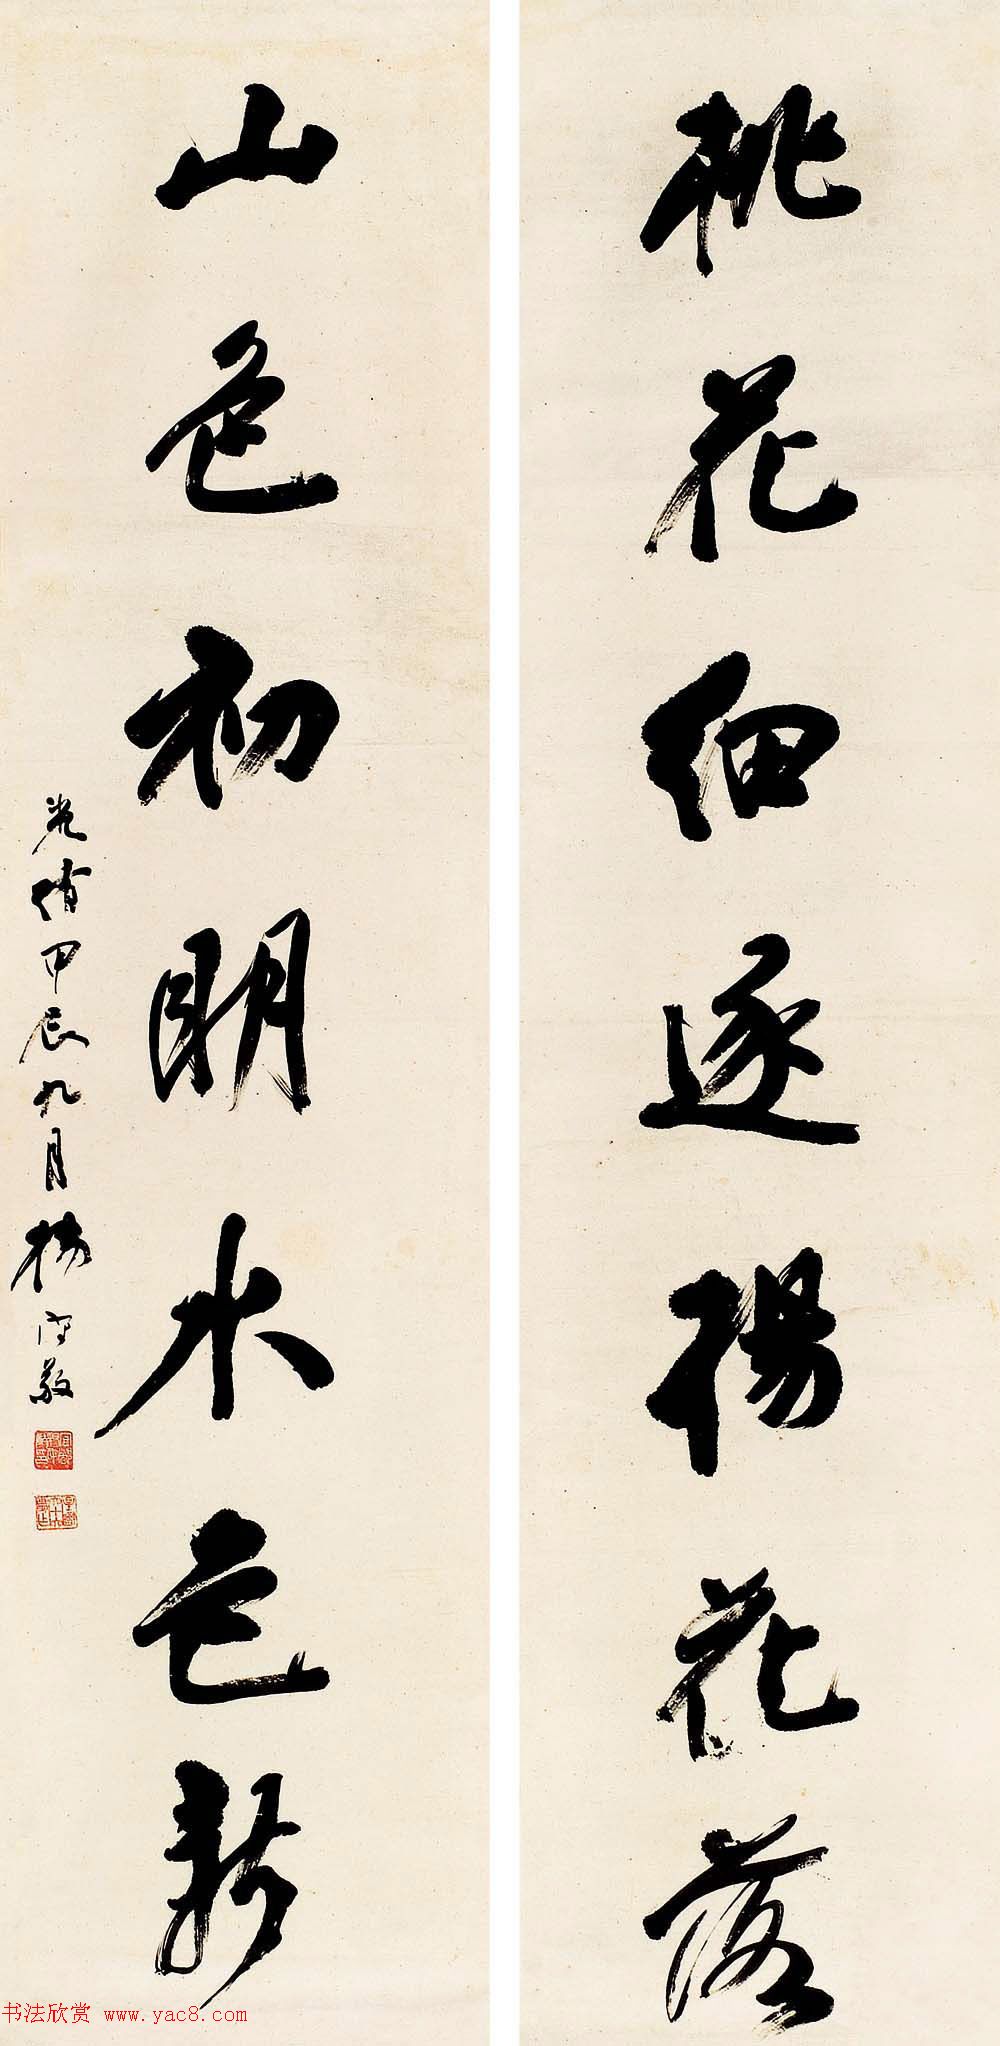 桃花細逐楊花落
山色初明水色新
光緒甲辰九月楊守敬
书法欣赏 www.yac8.com